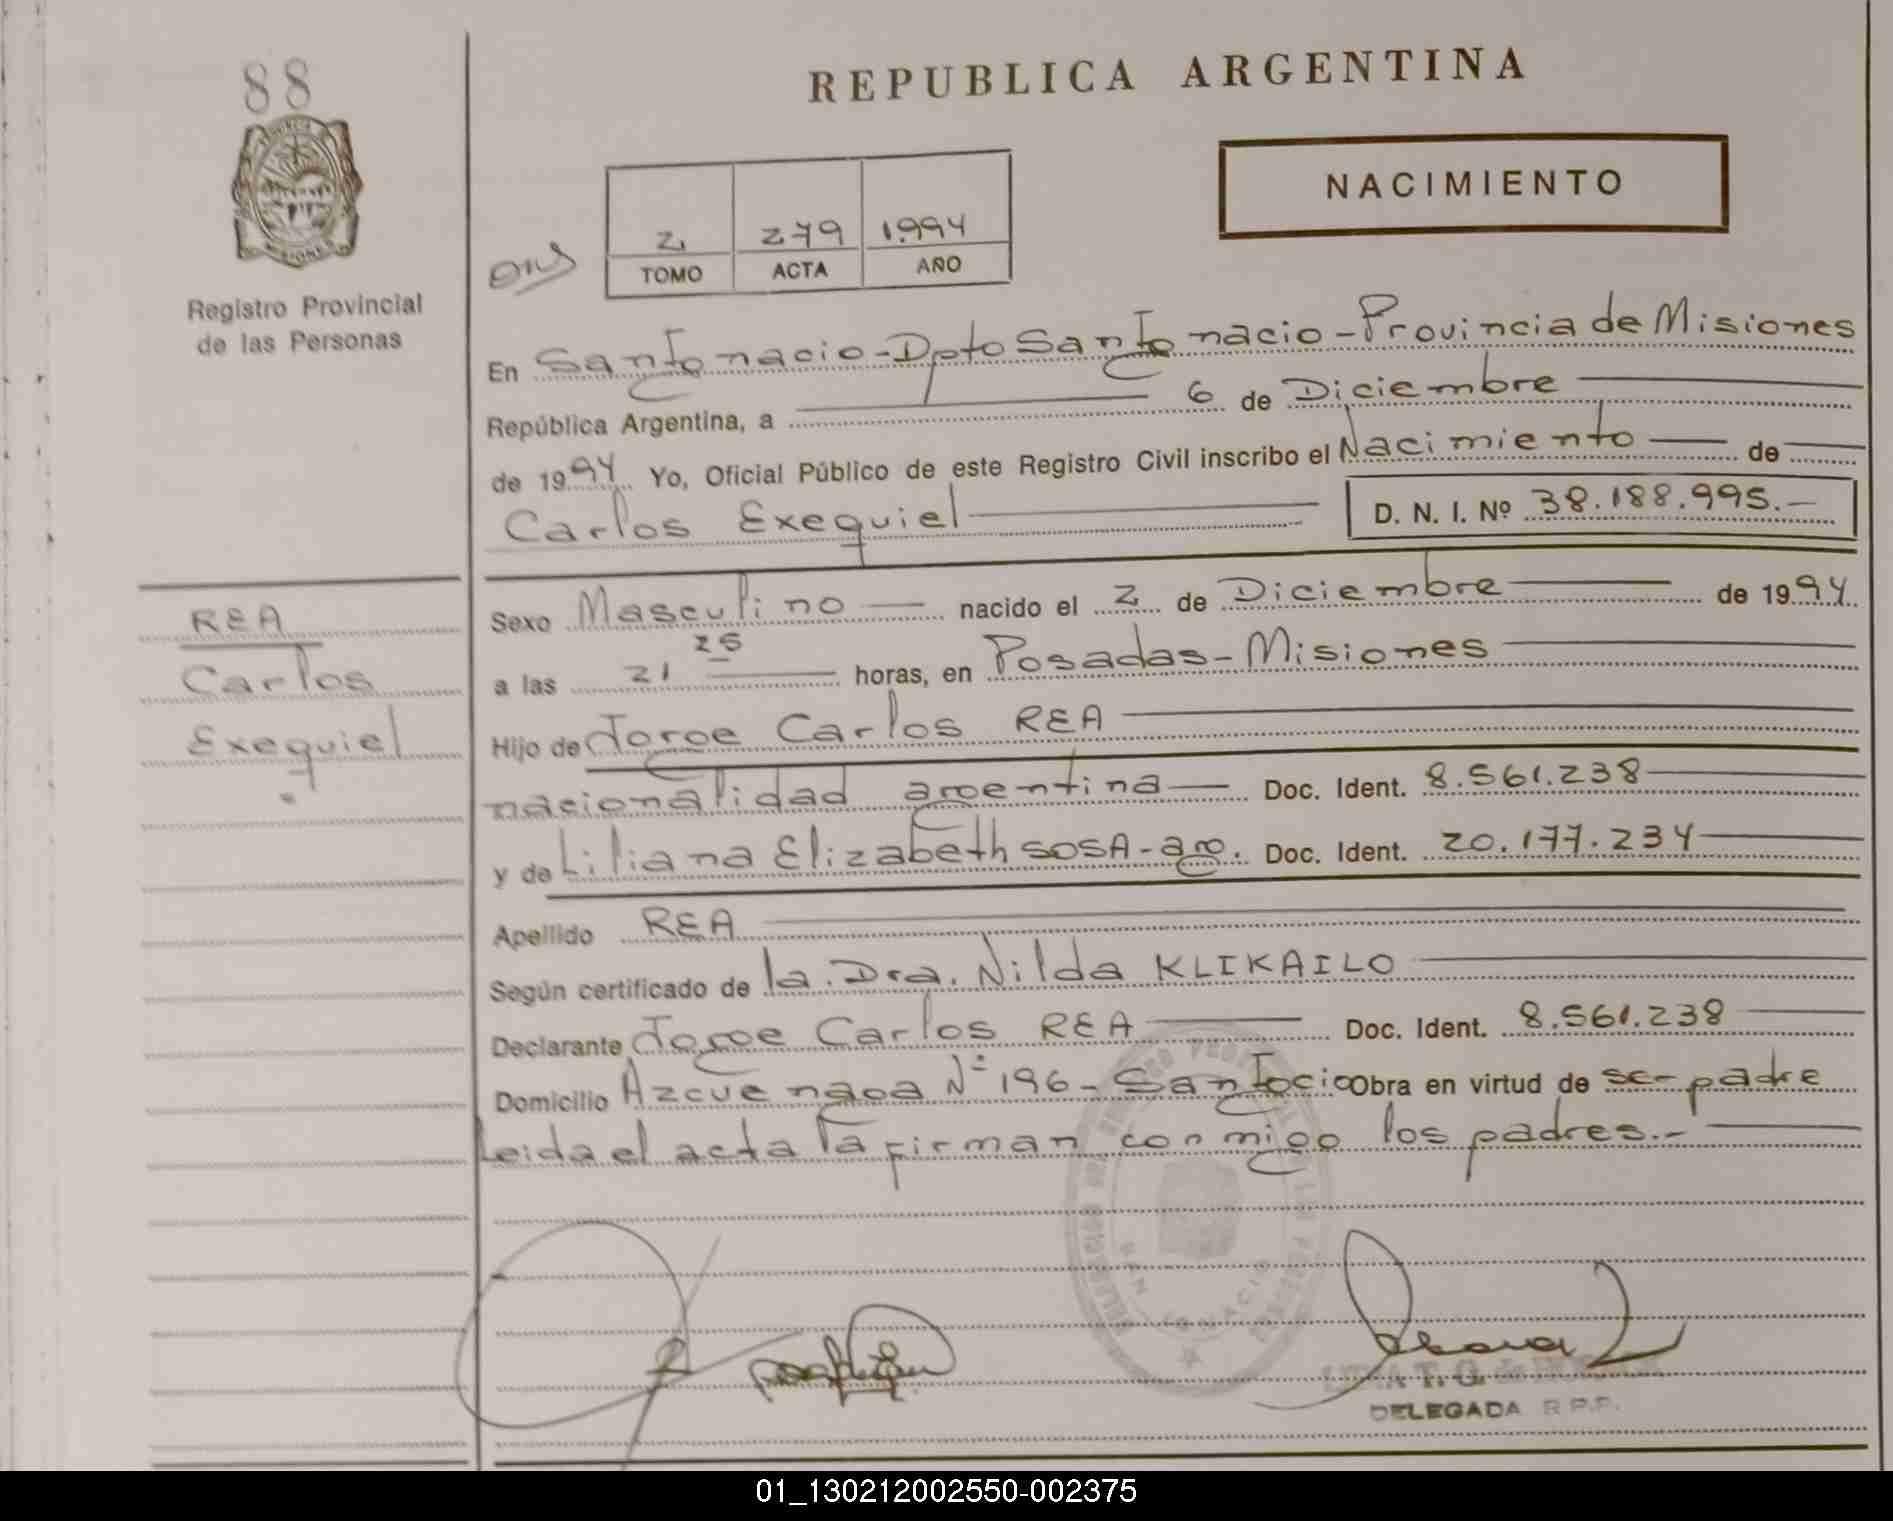 88
REPUBLICA ARGENTINA
NACIMIENTO
2 279 1.994
TOMO ACTA AÑO
Registro Provincial
de las Personas
En San Ignacio-Dpto San Ignacio-Provincia de Misiones
República Argentina, a 6 de Diciembre
de 1994 Yo, Oficial Público de este Registro Civil inscribo el Nacimiento de
Carlos Exequiel D. N. I. Nº 38.188.995.-
REA
Carlos
Exequiel
Sexo Masculino nacido el 2 de Diciembre de 1994
a las 21 25 horas, en Posadas-Misiones
Hijo de Jorge Carlos REA
nacionalidad argentina Doc. Ident. 8.561.238
y de Liliana Elizabeth SOSA-arg. Doc. Ident. 20.177.234
Apellido REA
Según certificado de la Dra. Nilda KLIKAILO
Declarante Jorge Carlos REA Doc. Ident. 8.561.238
Domicilio Azcuenaga Nº 196- Obra en virtud de ser padre
leida el acta la firman conmigo los padres.-
DELEGADA R.P.P.
01_130212002550-002375